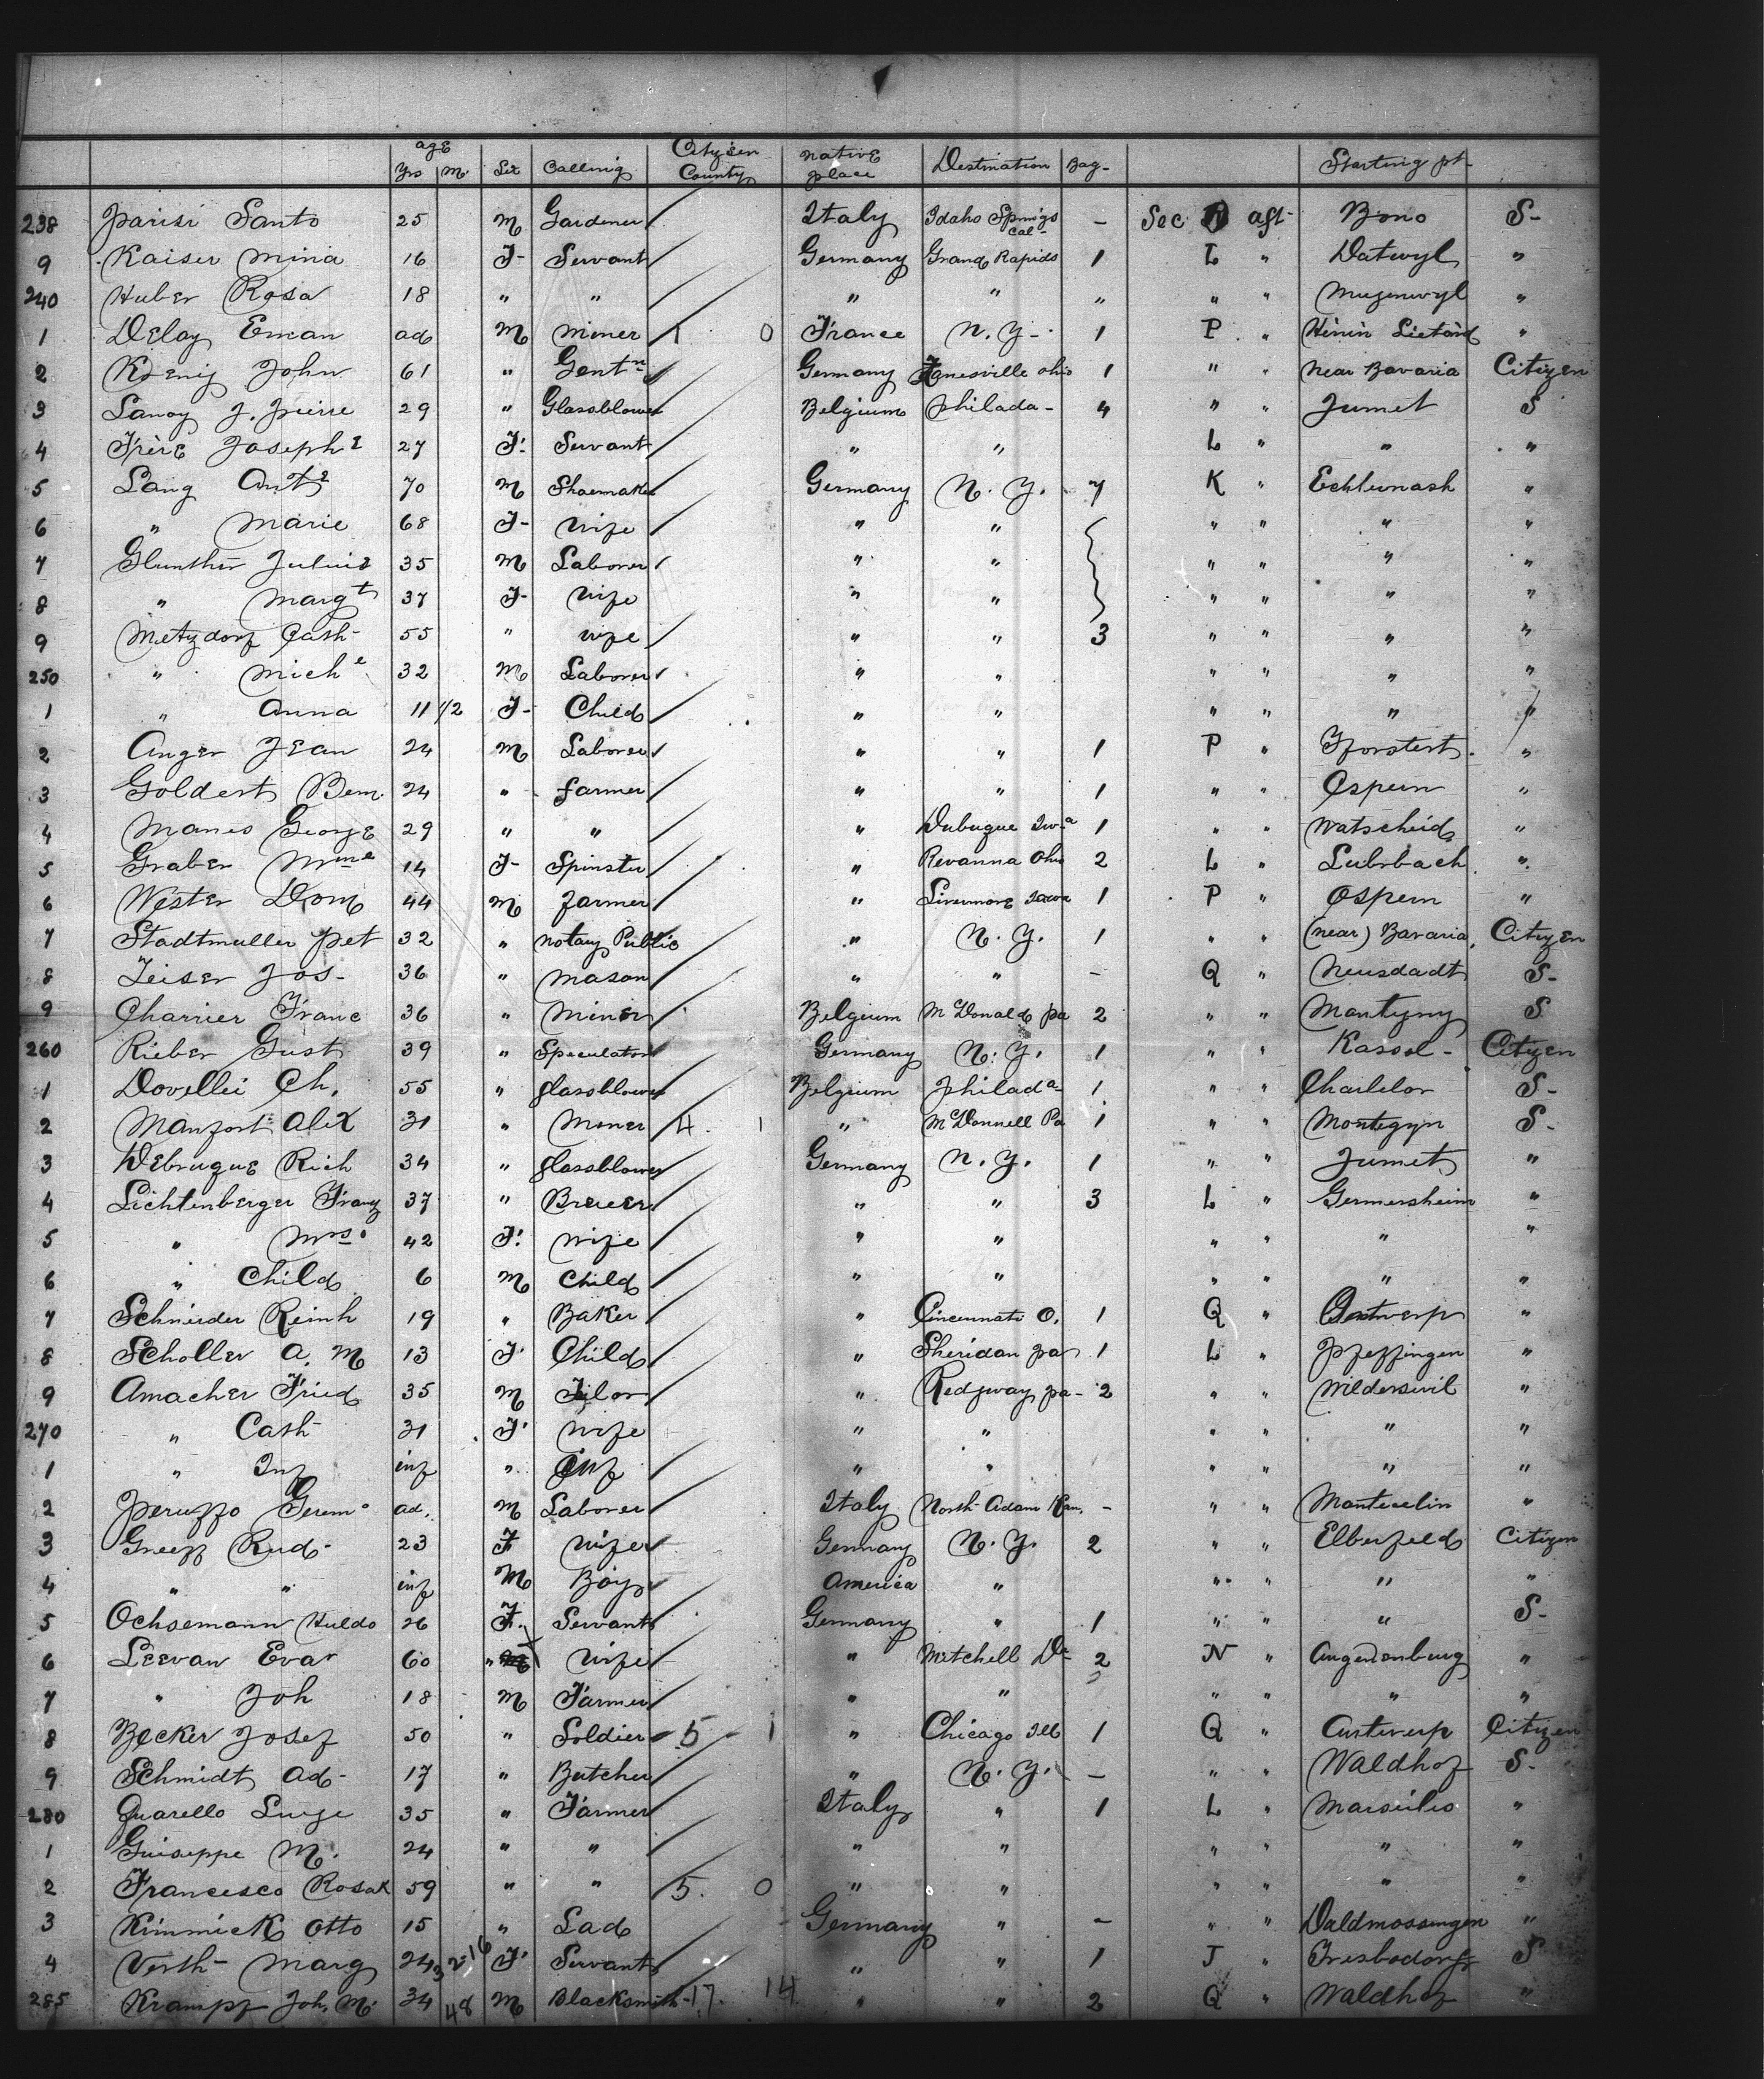 age Citizen native
Yrs M. Sex Calling County place Destination Bag- Starting pt-
238 Parisi Santo 25 M Gardener Italy Idaho Springs Cal- - Sec aft Bono S-
9 Kaiser Mina 16 F- Servant Germany Grand Rapids 1 L " Datwyl "
240 Huber Rosa 18 " " " " " " " Mugenwyl "
1 Delay Eman ad M Miner 1 0 France N.Y- 1 P " Hènin Lietard "
2 Koenig John 61 " Gentn Germany Zanesville Ohio 1 " " Near Bavaria Citizen
3 Lanoy J. Pierre 29 " Glassblower Belgium Philada- 4 " " Jumet S
4 Frère Josephe 27 F. Servant " " L " " "
5 Lang Ante 70 M Shoemaker Germany N.Y. 7 K " Echternash "
6 " Marie 68 F- Wife " " " " " "
7 Glunther Julius 35 M Laborer " " " " " "
8 " Margt 37 F- Wife " " " " " "
9 Metzdorf Cath- 55 " Wife " " 3 " " " "
250 " Miche 32 M Laborer " " " " " "
1 " Anna 11 1/2 F- Child " " " " " "
2 Anger Jean 24 M Laborer " " 1 P " "
3 Goldert Bem. 24 " Farmer " " 1 " " Ospern "
4 Manes George 29 " " " Dubuque Iwa 1 " " Watscheid "
5 Graber Mme 14 F- Spinster " Revanna Ohio 2 L " Luhrbach "
6 Wester Dom 44 M Farmer " Livermore Iowa 1 P " Ospern "
7 Stadtmuller Pet 32 " Notary Public " N.Y. 1 " " (near) Bavaria Citizen
8 Zeiser Jos- 36 " Mason " " - Q " Neusdadt S-
9 Charrier Franc 36 " Miner Belgium McDonald Pa 2 " " Montyny S
260 Rieber Gust 39 " Speculator Germany N.Y. 1 " " Kassel- Citizen
1 Dovellei Ch. 55 " Glassblower Belgium Philada- 1 " " Charlelor S-
2 Manfort Alex 31 " Miner 4. 1 " McDonnell Pa 1 " " Montegyn S-
3 Debruque Rich 34 " Glassblower Germany N.Y. 1 " " Jumet "
4 Lichtenberger Franz 37 " Brewer " " 3 L " Germersheim "
5 " Mrs. 42 F. Wife " " " " " "
6 " Child 6 M Child " " " " " "
7 Schnieder Reinh 19 " Baker " Cincennati O. 1 Q " Antwerp "
8 Scholler A. M 13 F. Child " Sheridan Pa 1 L " Pfeffingen "
9 Amacher Fried 35 M " Redgway Pa- 2 " " Wilderswil "
270 " Cath 31 F. Wife " " " " " "
1 " Inf inf " Inf " " " " " "
2 Peruffo Gerem. ad. M Laborer Italy North Adam - " " Montecelin "
3 Greeff Rud- 23 F Wife Germany N.Y. 2 " " Elberfeld Citizen
4 " " inf M Boy America " " " " "
5 Ochsemann Huldo 26 F. Servant Germany " 1 " " " S-
6 Leevan Evar 60 Wife " Mitchell Da- 2 N " "
7 " Joh 18 M Farmer " " " " " "
8 Becker Josef 50 " Soldier 5 1 " Chicago Ill 1 Q " Antwerp Citizen
9 Schmidt Ad- 17 " Butcher " N.Y. - " " Waldhof S-
280 Quarello Luige 35 " Farmer Italy " 1 L " Marseiles "
1 Guiseppe M. 24 " " " " " " " "
2 Francesco Rosak 59 " " 5. 0 " " " " " "
3 Kimmick Otto 15 " Lad Germany " - " " Waldmossingen "
4 Verth- Marg 24 F. Servant " " 1 J " Tresbodorf S
285 Krampf Joh. M. 34 48 M Blacksmith 17. 14 " " 2 Q " Waldhof "